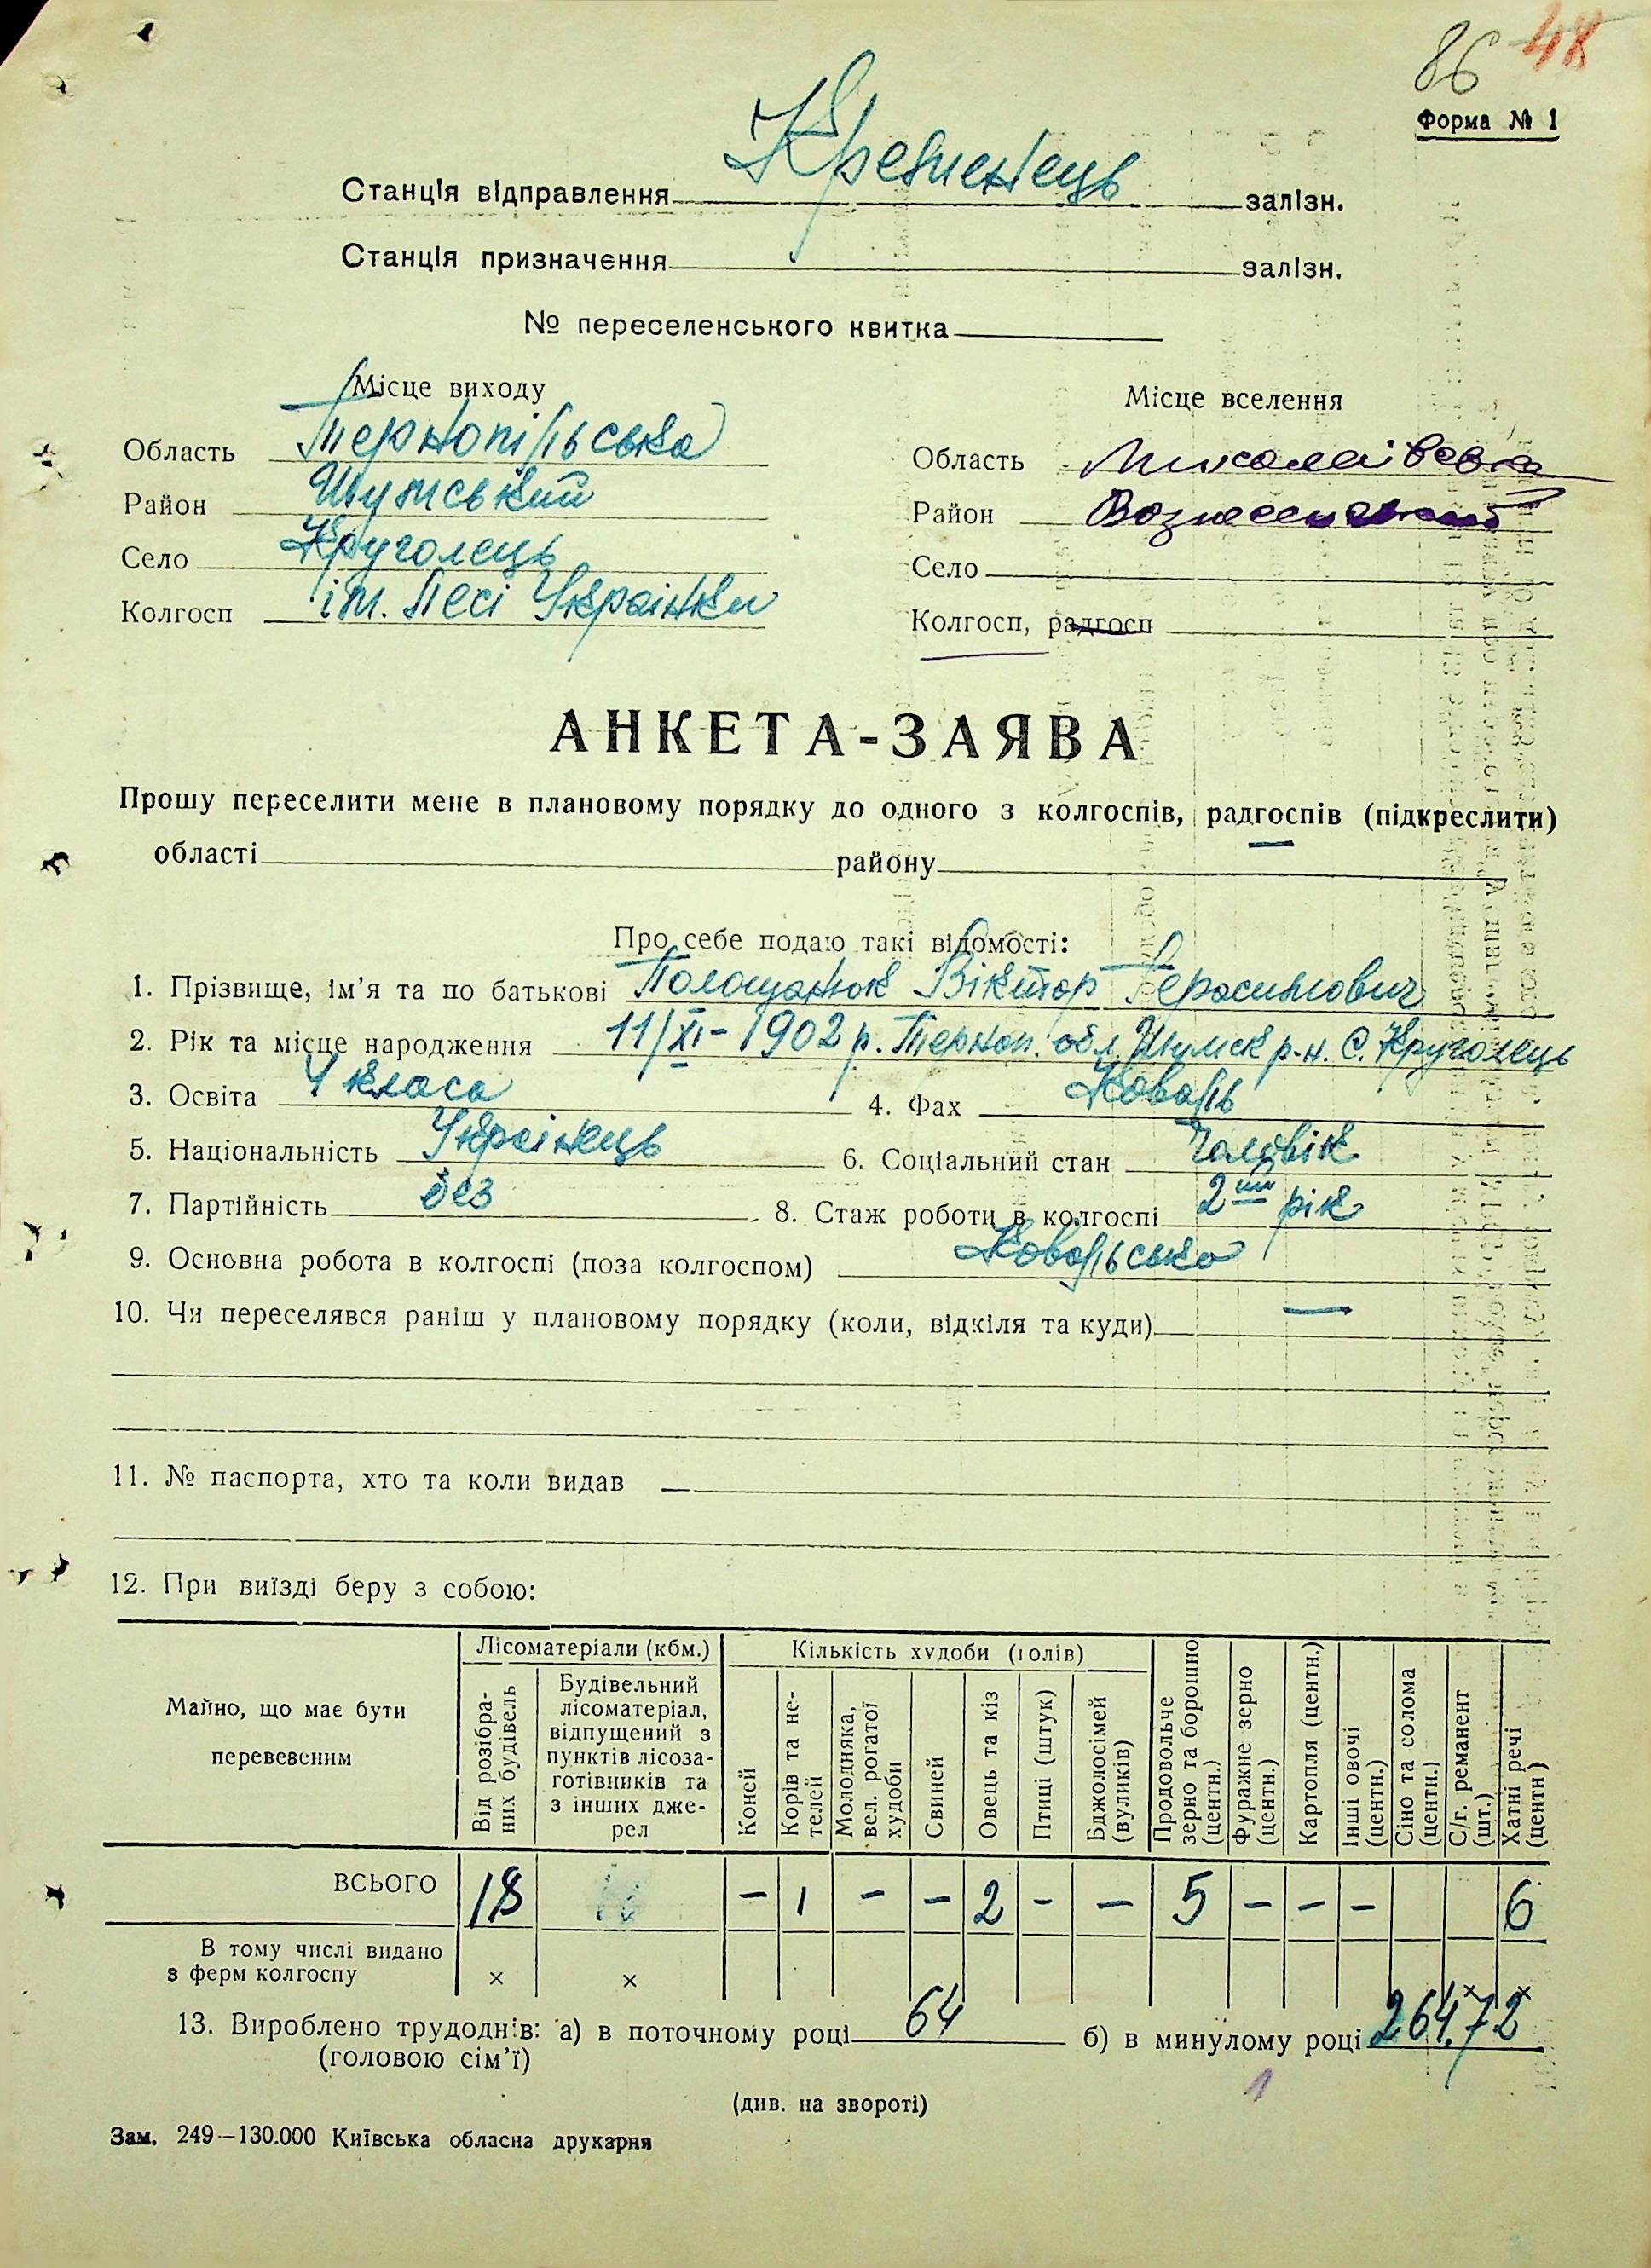 86 48
Форма № 1
Станція відправлення Кременець залізн.
Станція призначення залізн.
№ переселенського квитка
Місце виходу
Область Тернопільська
Район Шумський
Село Круголець
Колгосп ім. Лесі Українки
Місце вселення
Область Миколаївська
Район Вознесенський
Село
Колгосп, радгосп
АНКЕТА-ЗАЯВА
Прошу переселити мене в плановому порядку до одного з колгоспів, радгоспів (підкреслити)
області району
Про себе подаю такі відомості:
1. Прізвище, ім'я та по батькові Полощанюк Віктор Герасимович
2. Рік та місце народження 11/XI-1902 р. Терноп. обл. Шумск р-н. С. Круголець
3. Освіта 4 класа 4. Фах Коваль
5. Національність Українець 6. Соціальний стан Чоловік
7. Партійність без 8. Стаж роботи в колгоспі 2ий рік
9. Основна робота в колгоспі (поза колгоспом) Ковальська
10. Чи переселявся раніш у плановому порядку (коли, відкіля та куди) —
11. № паспорта, хто та коли видав —
12. При виїзді беру з собою:
Майно, що має бути перевезеним
Лісоматеріали (кбм.)
Від розібраних будівель
Будівельний лісоматеріал, відпущений з пунктів лісозаготівників та з інших джерел
Кількість худоби (голів)
Коней
Корів та нетелей
Молодняка, вел. рогатої худоби
Свиней
Овець та кіз
Птиці (штук)
Бджолосімей (вуликів)
Продовольче зерно та борошно (центн.)
Фуражне зерно (центн.)
Картопля (центн.)
Інші овочі (центн.)
Сіно та солома (центн.)
С/г. реманент (шт.)
Хатні речі (центн)
ВСЬОГО 18 – 1 – – 2 – – 5 – – – 6
В тому числі видано з ферм колгоспу × × × ×
13. Вироблено трудоднів: а) в поточному році 64 б) в минулому році 264,72
(головою сім'ї)
1
(див. на звороті)
Зам. 249—130.000 Київська обласна друкарня